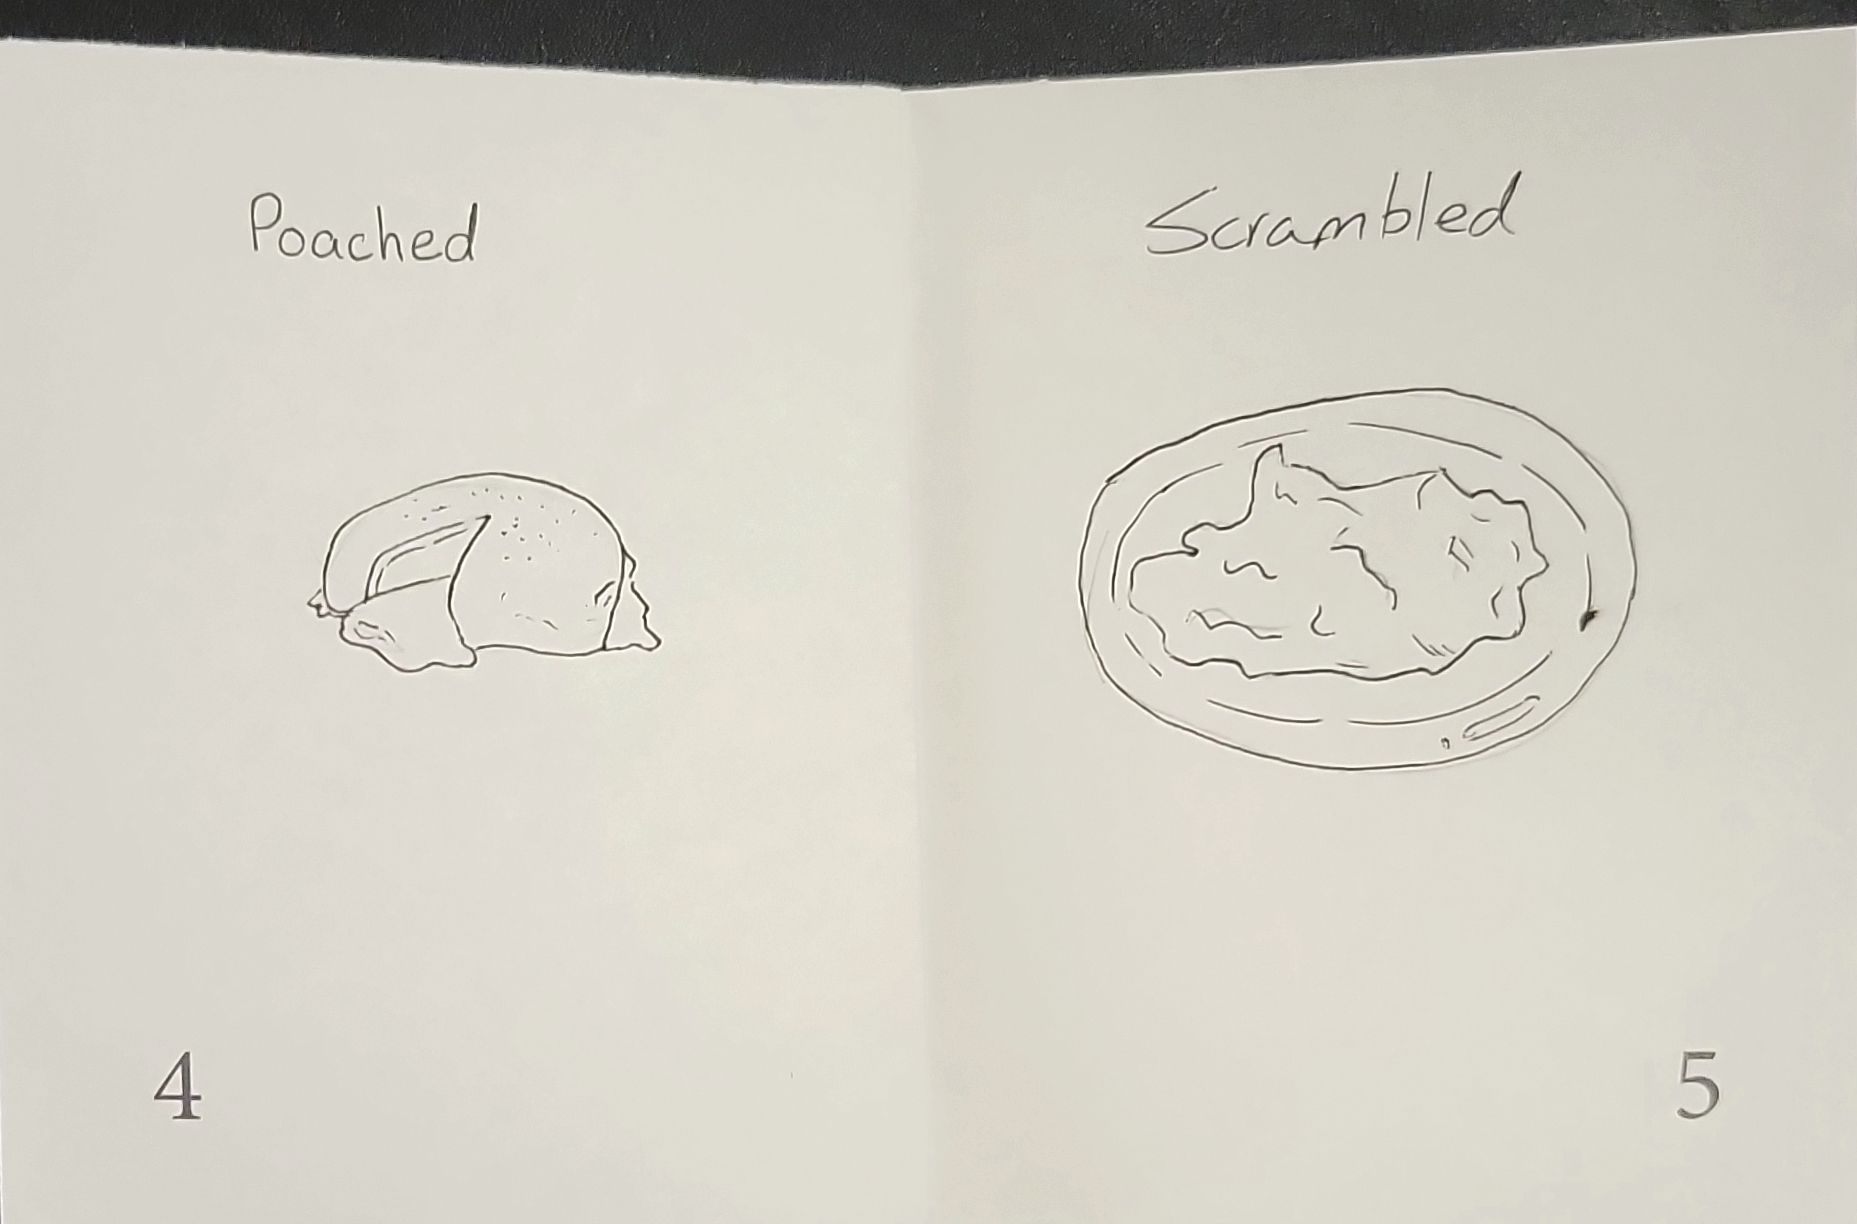 Poached
Scrambled
4
5